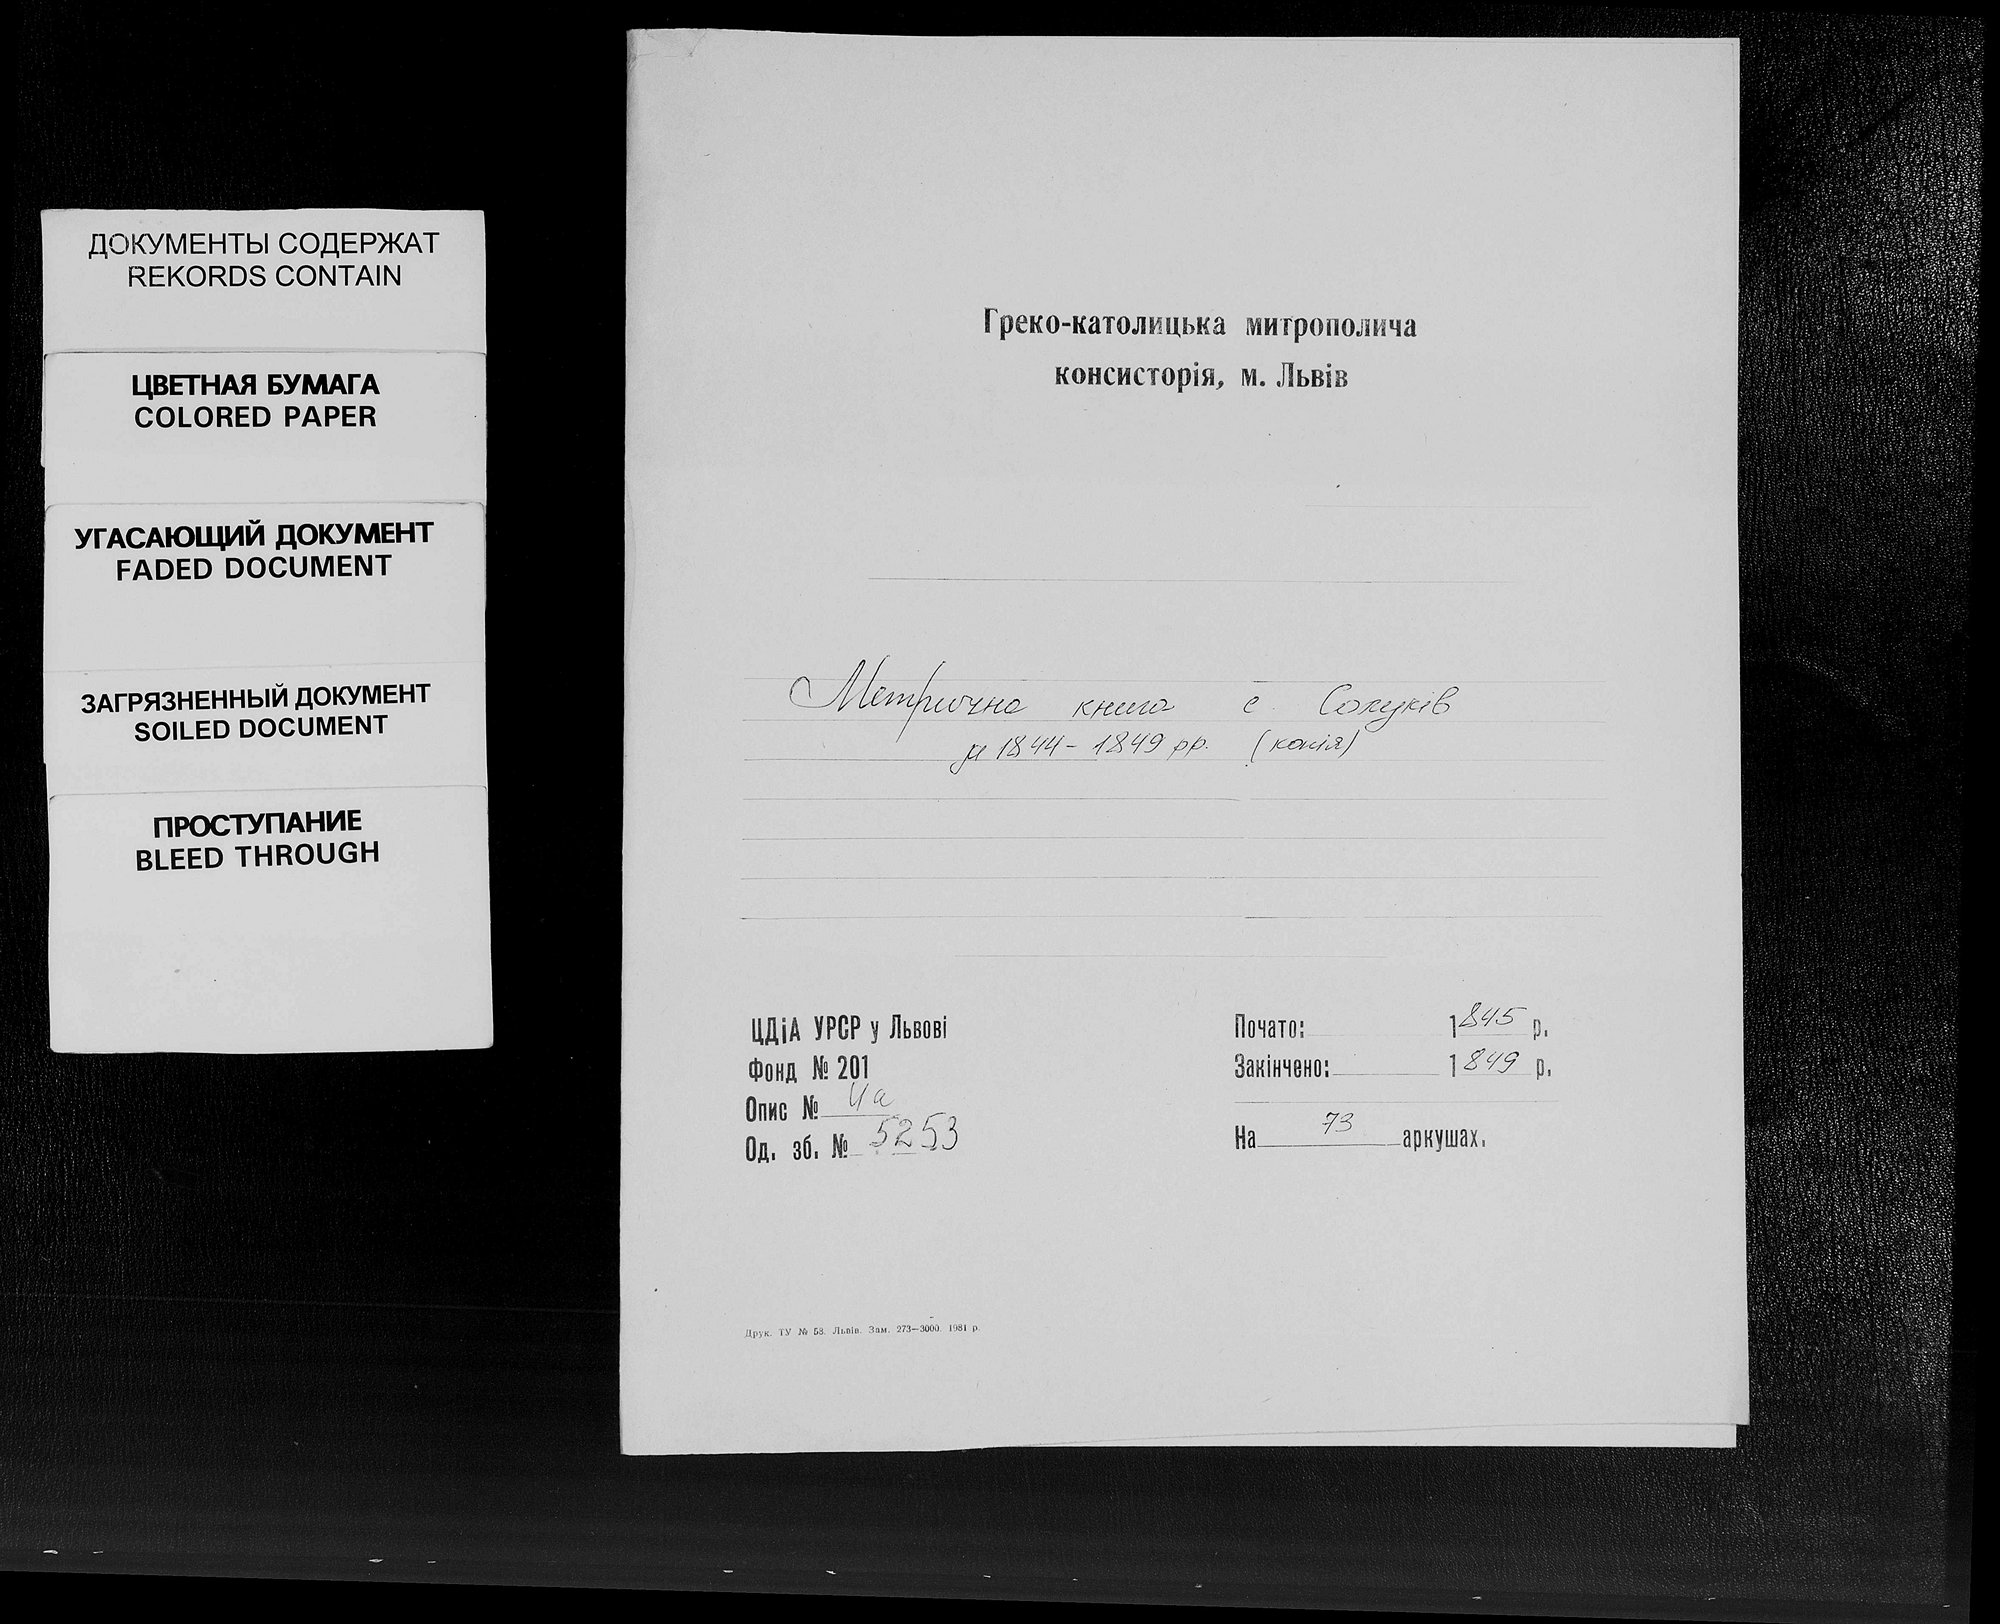 ДОКУМЕНТЫ СОДЕРЖАТ
REKORDS CONTAIN
ЦВЕТНАЯ БУМАГА
COLORED PAPER
УГАСАЮЩИЙ ДОКУМЕНТ
FADED DOCUMENT
ЗАГРЯЗНЕННЫЙ ДОКУМЕНТ
SOILED DOCUMENT
ПРОСТУПАНИЕ
BLEED THROUGH
Греко-католицька митрополича
консисторія, м. Львів
Метрична книга с. Солуків
1844-1849 рр. (копія)
ЦДіА УРСР у Львові
Фонд № 201
Опис № 4а
Од. зб. № 5253
Почато: 1845 р.
Закінчено: 1849 р.
На 73 аркушах.
Друк. ТУ № 58. Львів. Зам. 273—3000. 1981 р.